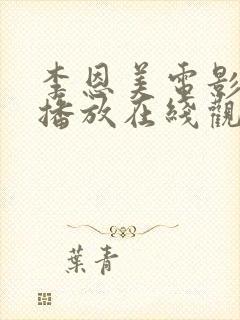 李恩美電影
播放在綫觀
葉青